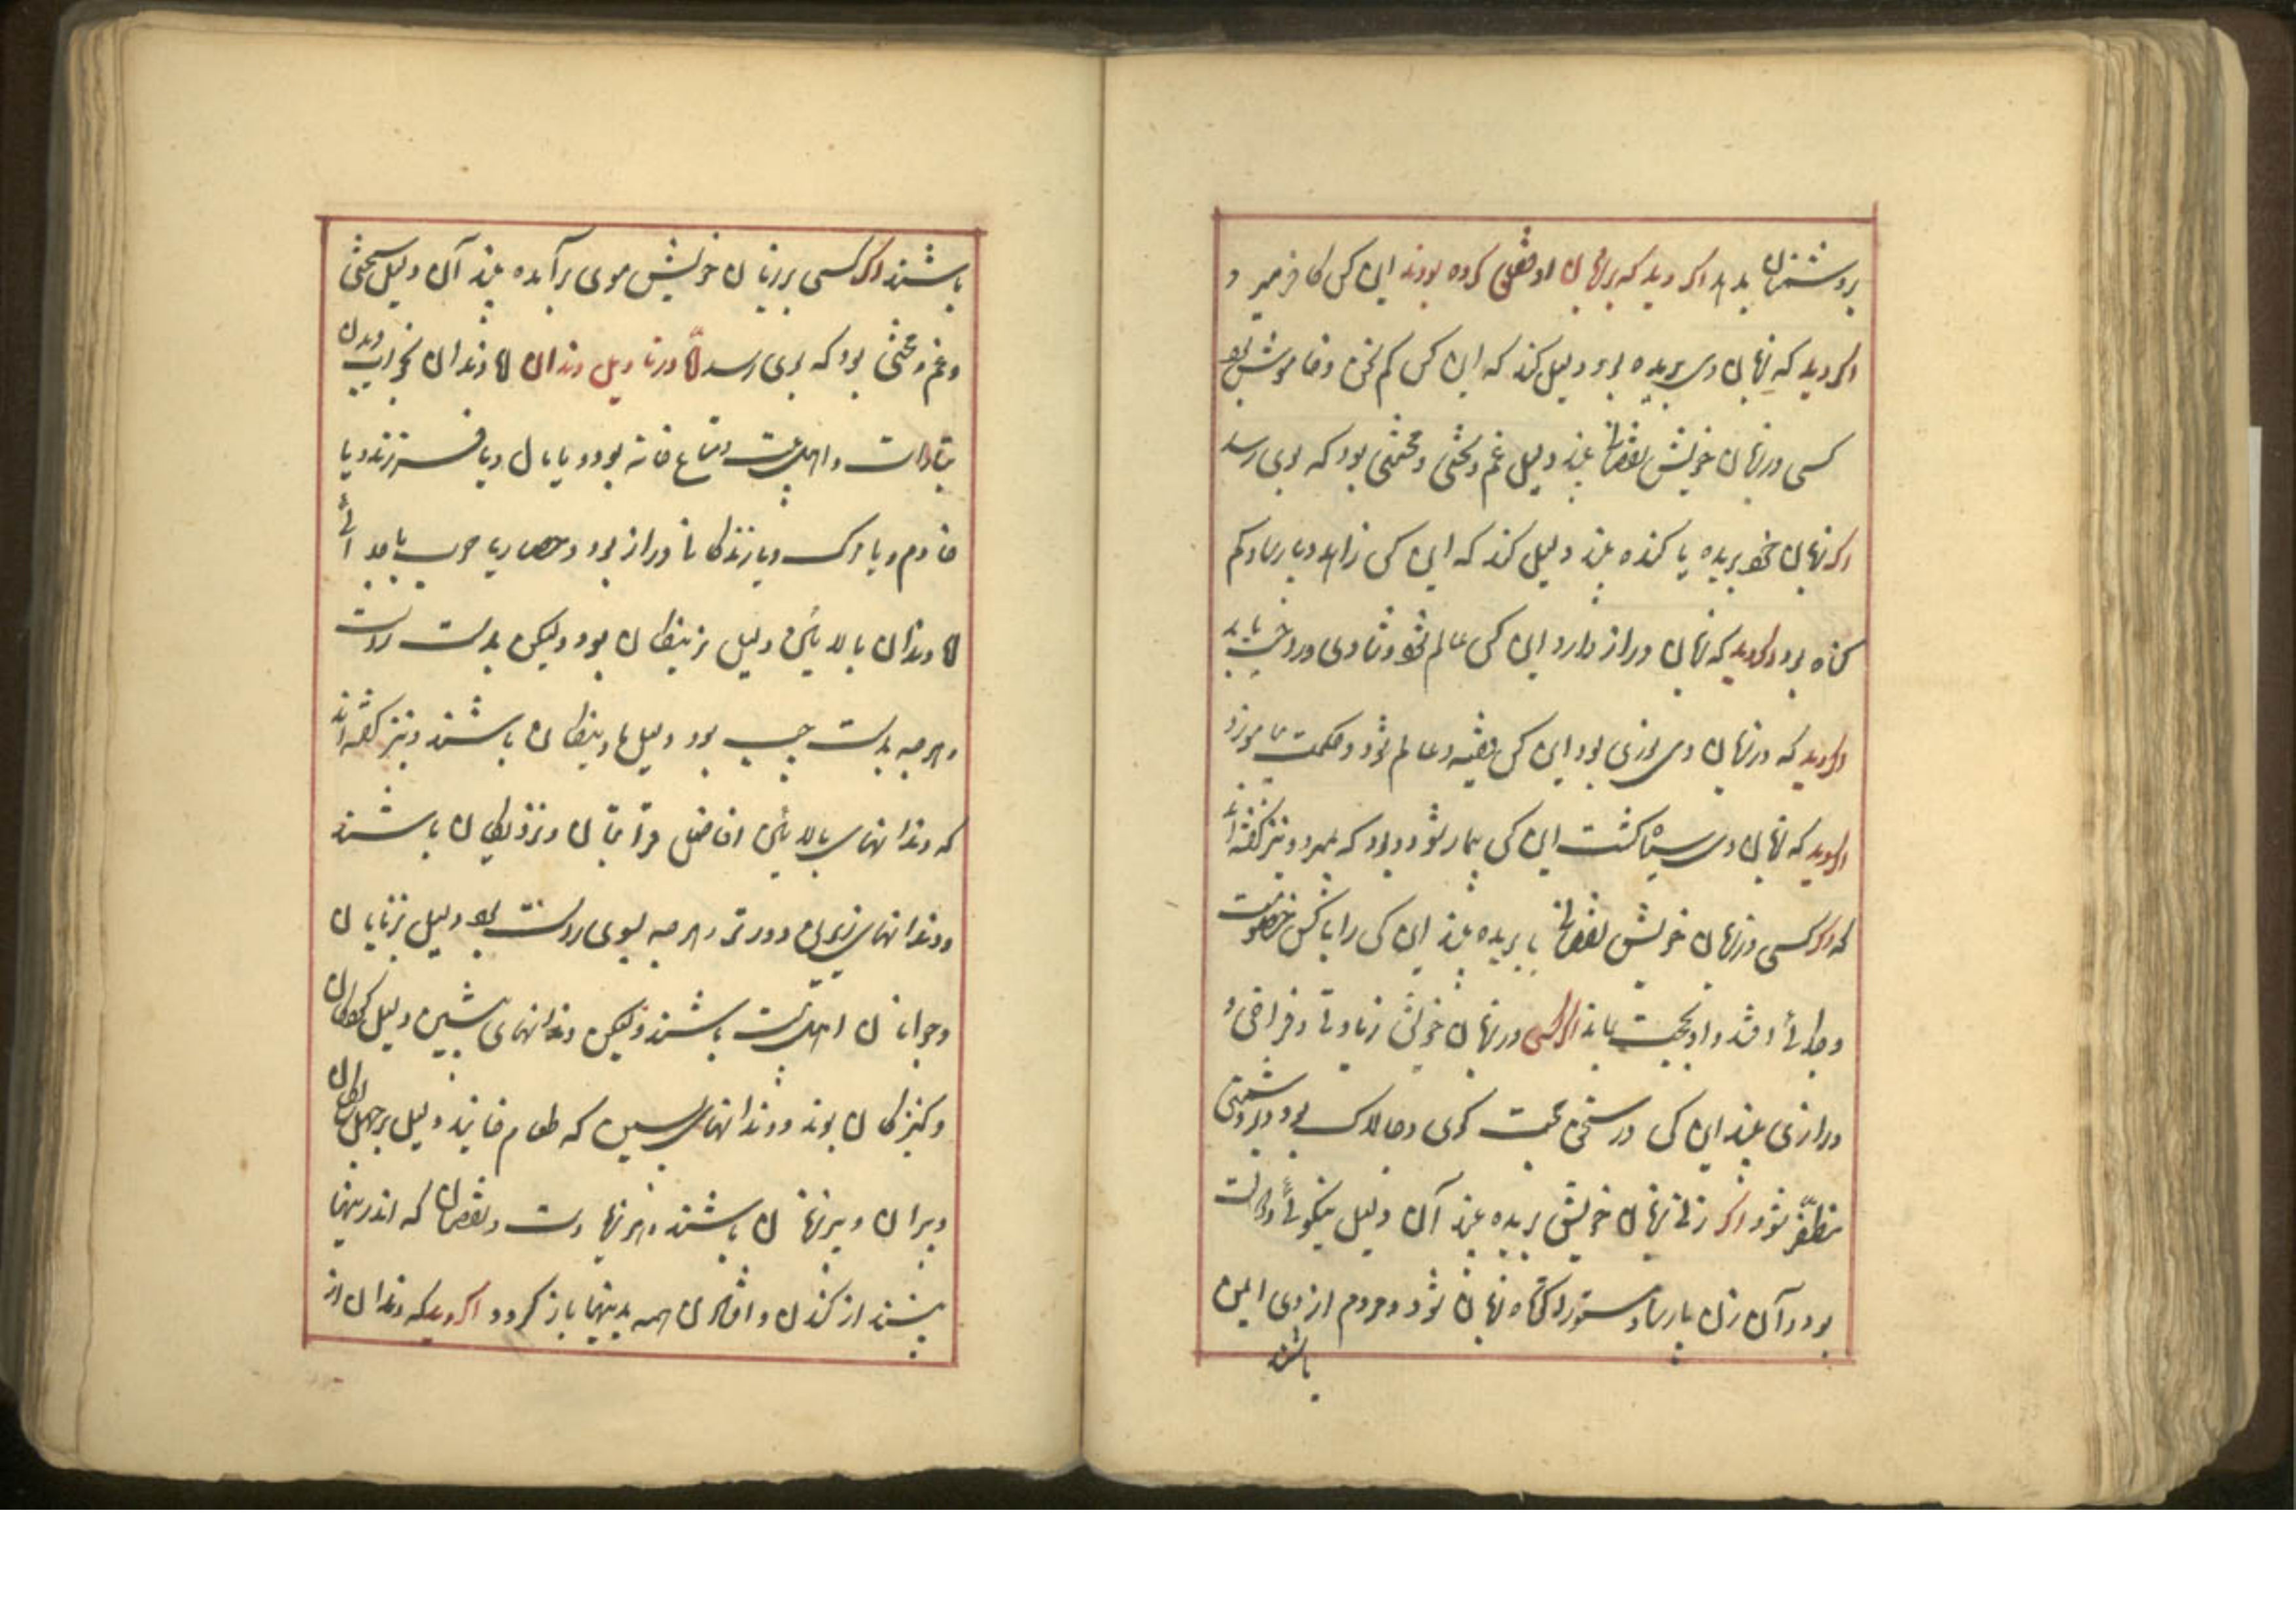 بر دشمنان بد بد اکر دید که بر زبان او قفلی کرده بودند این کس کافر میرد و
اکر دید که زبان وی بریده بود دلیل کند که این کس کم سخن و خاموش بود
کسی در زبان خویش نقصانی بیند دلیل غم و سختی و محنتی بود که بوی رسد
اکر زبان خود بریده یا کنده بیند دلیل کند که این کس زاهد و پارسا و کم
کناه بود و اکر دید که زبان دراز دارد این کس عالم شود و شادی و راحت یابد
و اکر دید که در زبان وی بود این کس فقیه و عالم شود و حکمت آموزد
اکر دید که زبان وی سیاه کشت این کس بیمار شود و بود که بمیرد و نیز کفته‌اند
که اکر کسی در زبان خویش نقصانی یا بریده بیند این کس را با کس خصومت
و جدائی افتد و او بحجت بماند اکر کسی در زبان خویش زیادتی و فراخی و
درازی بیند این کس در سخن حجت کوی و چالاک بود و بر دشمن
مظفّر شود و اکر زنی زبان خویش بریده بیند آن دلیل نیکوئی و
بود و آن زن پارسا و مستور و کوتاه زبان شود و مردم از وی ایمن
باشند
باشند اکر کسی بر زبان خویش موی بر آمده بیند آن دلیل سختی
و غم و محنتی بود که بوی رسد امّا در تأویل دندان اما دندان بخواب دیدن
و اهل بیت و متاع خانه بود و یا مال و یا فرزند و یا
خادم و یا مرک و یا زندکانی دراز بود و یا جدائی
اما دندان بالائین دلیل نرینکان بود ولیکن بدست راست
و هرچه بدست چپ بود دلیل مادینکان باشند و نیز کفته‌اند
که دندانهای بالائین افاضل قرابتان و نزدیکان باشند
و دندانهای زیرین دورتر و هرچه بسوی راست بود دلیل بزنان
و جوانان اهل بیت باشند ولیکن دندانهای پیشین دلیل کودکان
و کنیزکان بوند و دندانهای پسین که طعام خایند دلیل بر
پیران و پیرزنان باشند و هر زیادت و نقصان که اندرینها
بینند از کندن و افتادن همه بدینها باز کردد اکر دید که دندان از